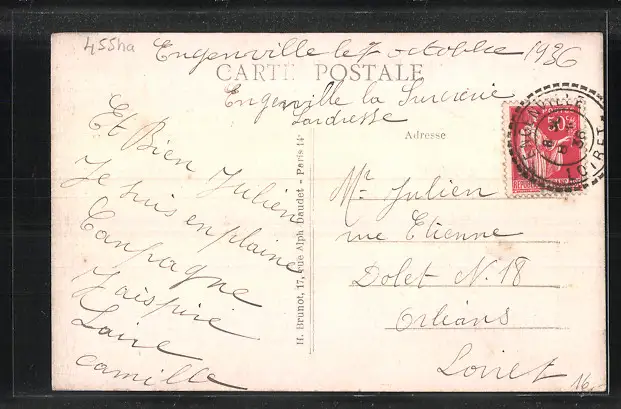 455ha
Engenville le 7 octobre 1936
CARTE POSTALE
Engenville la Sucrerie
Ladresse
Adresse
Et Bien Julien
Je suis en plaine
Canpagne
Jaispire
Laire
camille
H. Brunot, 17, rue Alph. Daudet - Paris 14e
50c
ENGENVILLE
LOIRET
Mr. Julien
rue Etienne
Dolet N. 18
Orlians
Loiret